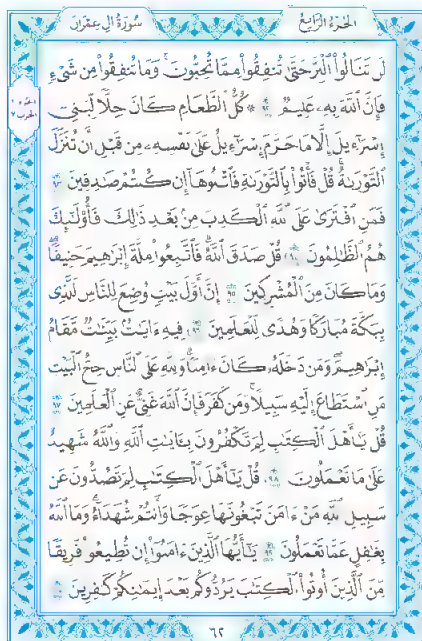 الجزء الرابع
سورة آل عمران
لَن تَنَالُوا۟ ٱلْبِرَّ حَتَّىٰ تُنفِقُوا۟ مِمَّا تُحِبُّونَ ۚ وَمَا تُنفِقُوا۟ مِن شَىْءٍ
فَإِنَّ ٱللَّهَ بِهِۦ عَلِيمٌ ٩٢ ۞ كُلُّ ٱلطَّعَامِ كَانَ حِلًّا لِّبَنِىٓ
إِسْرَٰٓءِيلَ إِلَّا مَا حَرَّمَ إِسْرَٰٓءِيلُ عَلَىٰ نَفْسِهِۦ مِن قَبْلِ أَن تُنَزَّلَ
ٱلتَّوْرَىٰةُ ۗ قُلْ فَأْتُوا۟ بِٱلتَّوْرَىٰةِ فَٱتْلُوهَآ إِن كُنتُمْ صَٰدِقِينَ ٩٣
فَمَنِ ٱفْتَرَىٰ عَلَى ٱللَّهِ ٱلْكَذِبَ مِنۢ بَعْدِ ذَٰلِكَ فَأُو۟لَٰٓئِكَ
هُمُ ٱلظَّٰلِمُونَ ٩٤ قُلْ صَدَقَ ٱللَّهُ ۗ فَٱتَّبِعُوا۟ مِلَّةَ إِبْرَٰهِيمَ حَنِيفًا
وَمَا كَانَ مِنَ ٱلْمُشْرِكِينَ ٩٥ إِنَّ أَوَّلَ بَيْتٍ وُضِعَ لِلنَّاسِ لَلَّذِى
بِبَكَّةَ مُبَارَكًا وَهُدًى لِّلْعَٰلَمِينَ ٩٦ فِيهِ ءَايَٰتٌۢ بَيِّنَٰتٌ مَّقَامُ
إِبْرَٰهِيمَ ۖ وَمَن دَخَلَهُۥ كَانَ ءَامِنًا ۗ وَلِلَّهِ عَلَى ٱلنَّاسِ حِجُّ ٱلْبَيْتِ
مَنِ ٱسْتَطَاعَ إِلَيْهِ سَبِيلًا ۚ وَمَن كَفَرَ فَإِنَّ ٱللَّهَ غَنِىٌّ عَنِ ٱلْعَٰلَمِينَ ٩٧
قُلْ يَٰٓأَهْلَ ٱلْكِتَٰبِ لِمَ تَكْفُرُونَ بِـَٔايَٰتِ ٱللَّهِ وَٱللَّهُ شَهِيدٌ
عَلَىٰ مَا تَعْمَلُونَ ٩٨ قُلْ يَٰٓأَهْلَ ٱلْكِتَٰبِ لِمَ تَصُدُّونَ عَن
سَبِيلِ ٱللَّهِ مَنْ ءَامَنَ تَبْغُونَهَا عِوَجًا وَأَنتُمْ شُهَدَآءُ ۗ وَمَا ٱللَّهُ
بِغَٰفِلٍ عَمَّا تَعْمَلُونَ ٩٩ يَٰٓأَيُّهَا ٱلَّذِينَ ءَامَنُوٓا۟ إِن تُطِيعُوا۟ فَرِيقًا
مِّنَ ٱلَّذِينَ أُوتُوا۟ ٱلْكِتَٰبَ يَرُدُّوكُم بَعْدَ إِيمَٰنِكُمْ كَٰفِرِينَ
٦٢